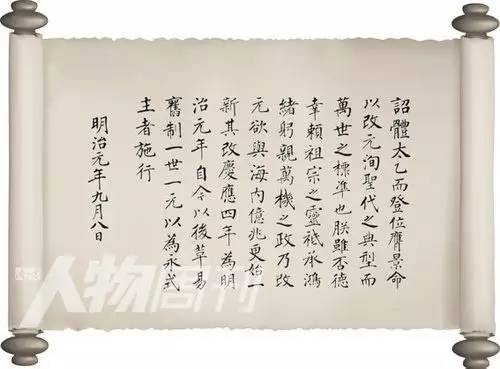 詔體太乙而登位膺景命
以改元洵聖代之典型而
萬世之標準也朕雖否德
幸賴祖宗之靈祗承鴻
緒躬親萬機之政乃改
元欲與海內億兆更始一
新其改慶應四年為明
治元年自今以後革易
舊制一世一元以為永式
主者施行
明治元年九月八日
人物周刊